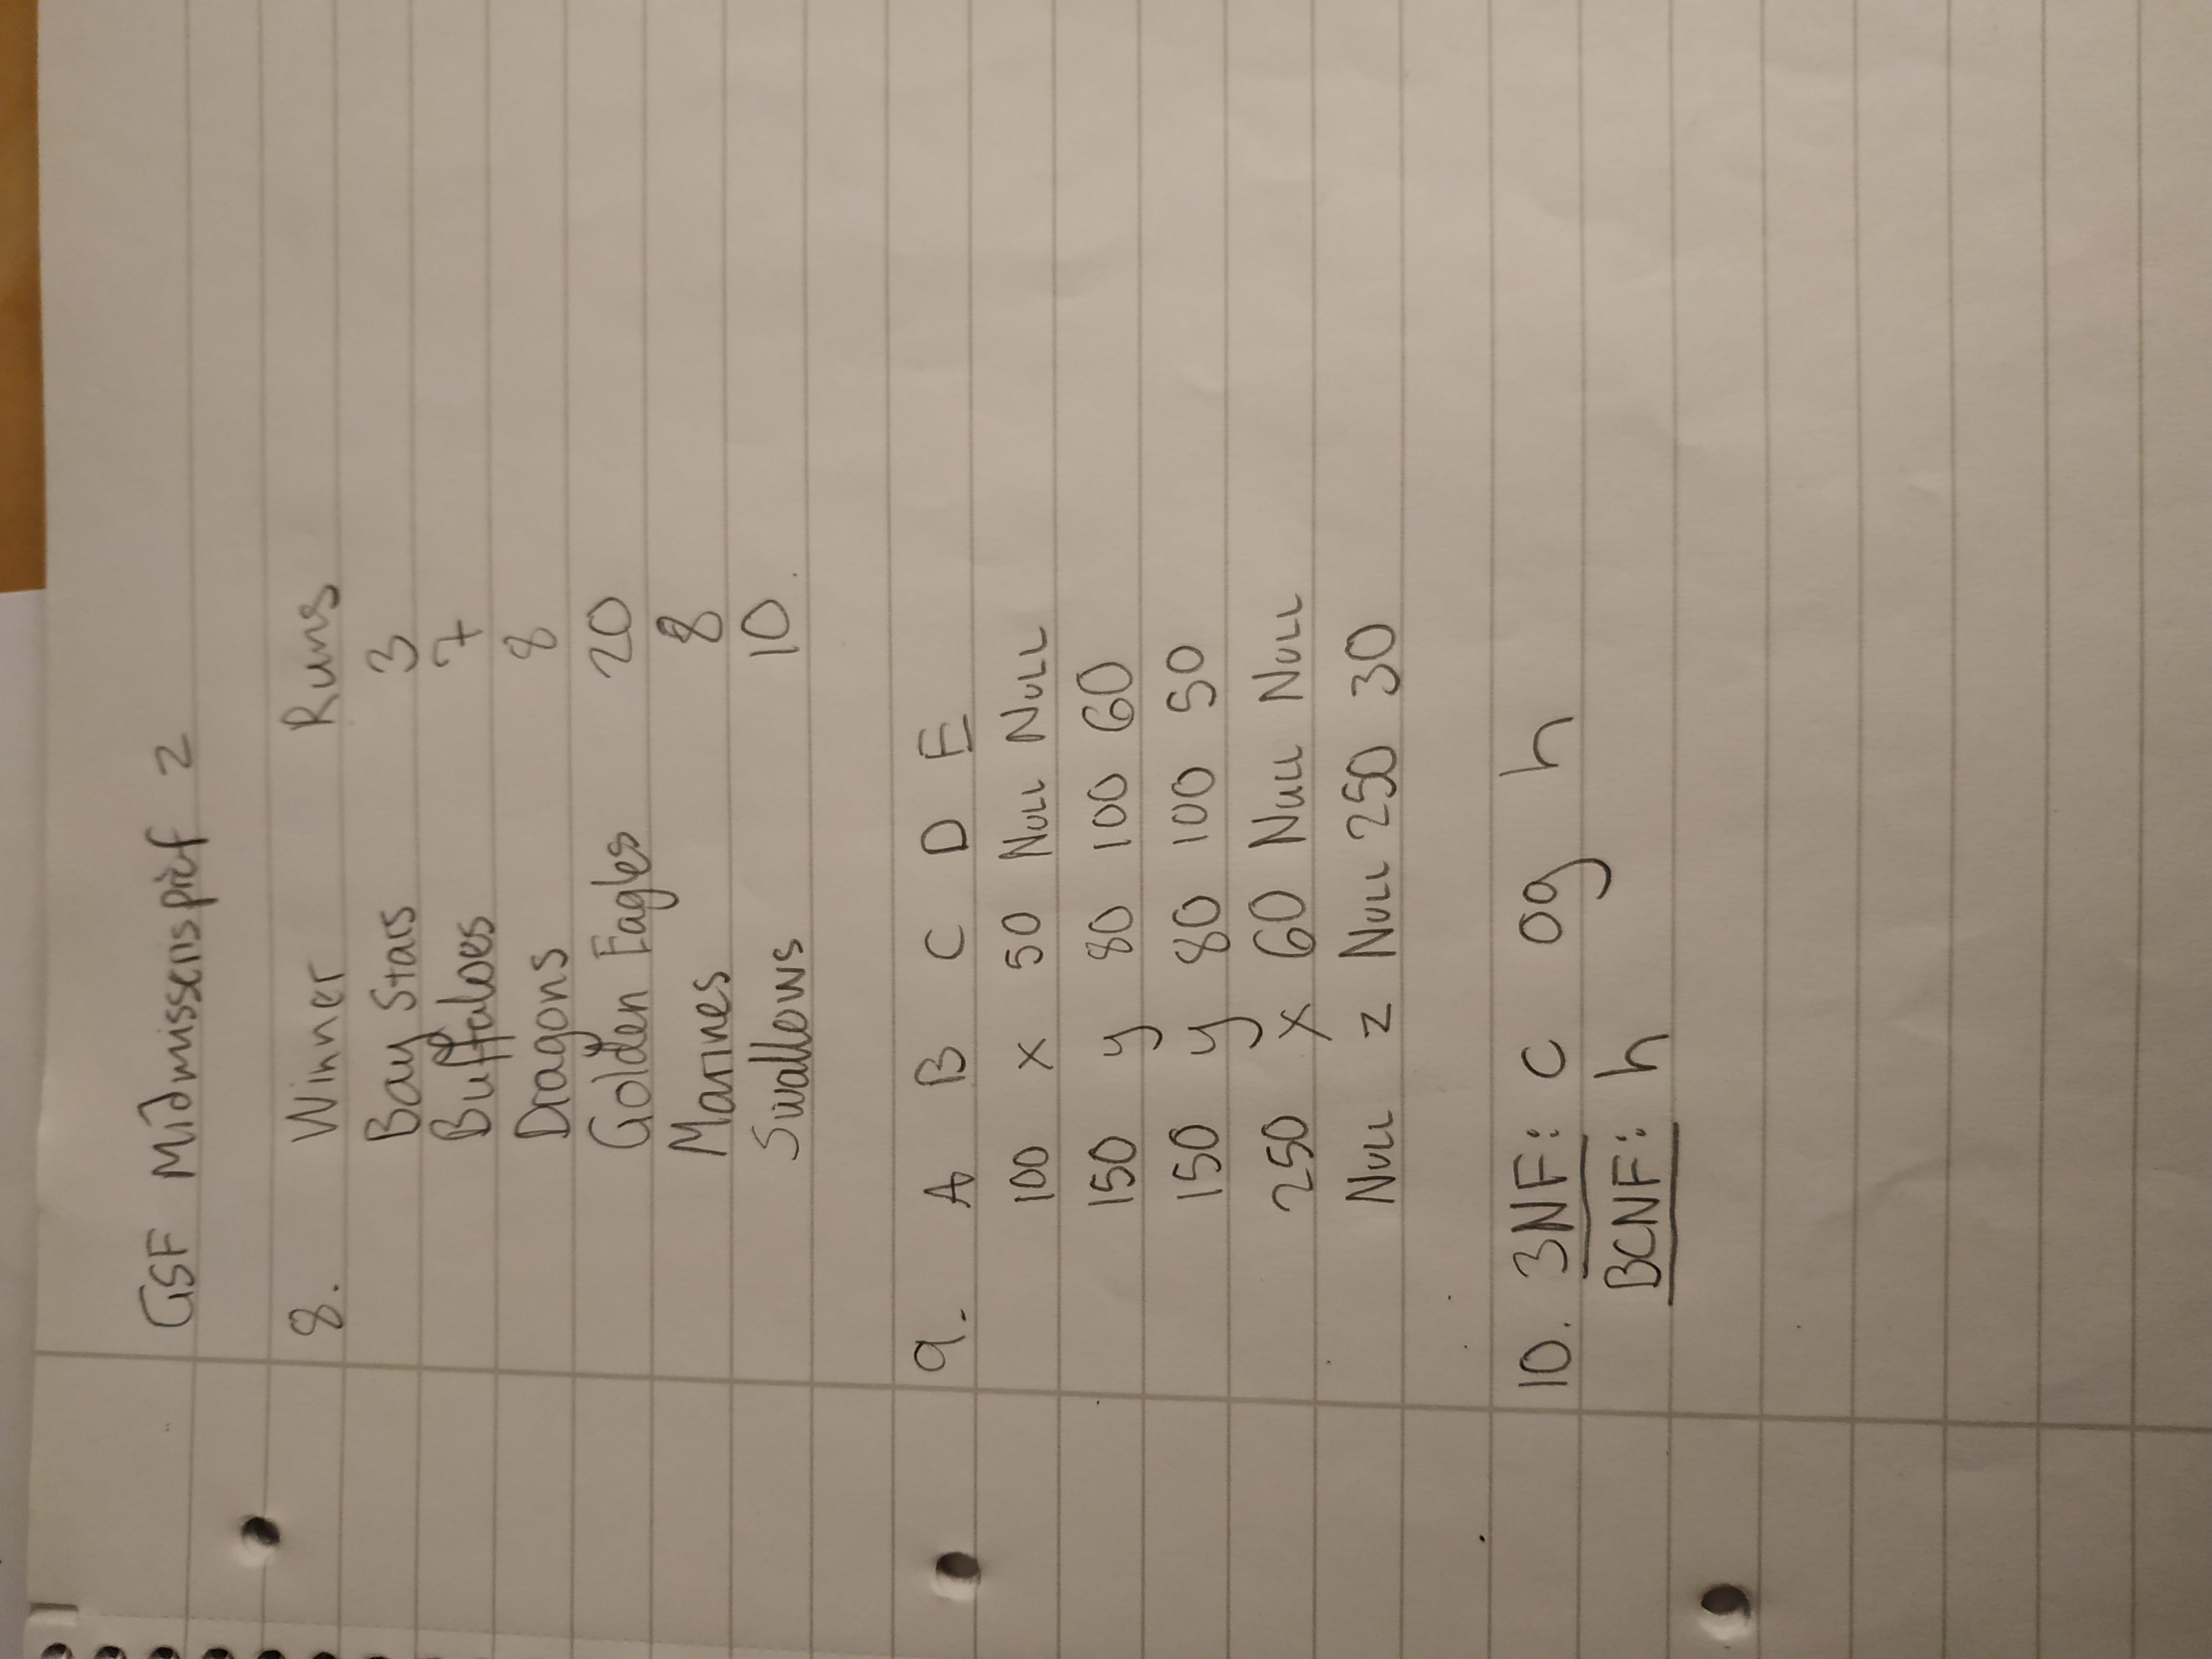 GSF Miðmisserispróf 2
8. Winner Runs
Bay Stars 3
Buffaloes 7
Dragons 8
Golden Eagles 20
Marines 8
Swallows 10
9. A B C D E
100 x 50 NULL NULL
150 y 80 100 60
150 y 80 100 50
250 x 60 NULL NULL
NULL z NULL 250 30
10. 3NF: c og h
BCNF: h